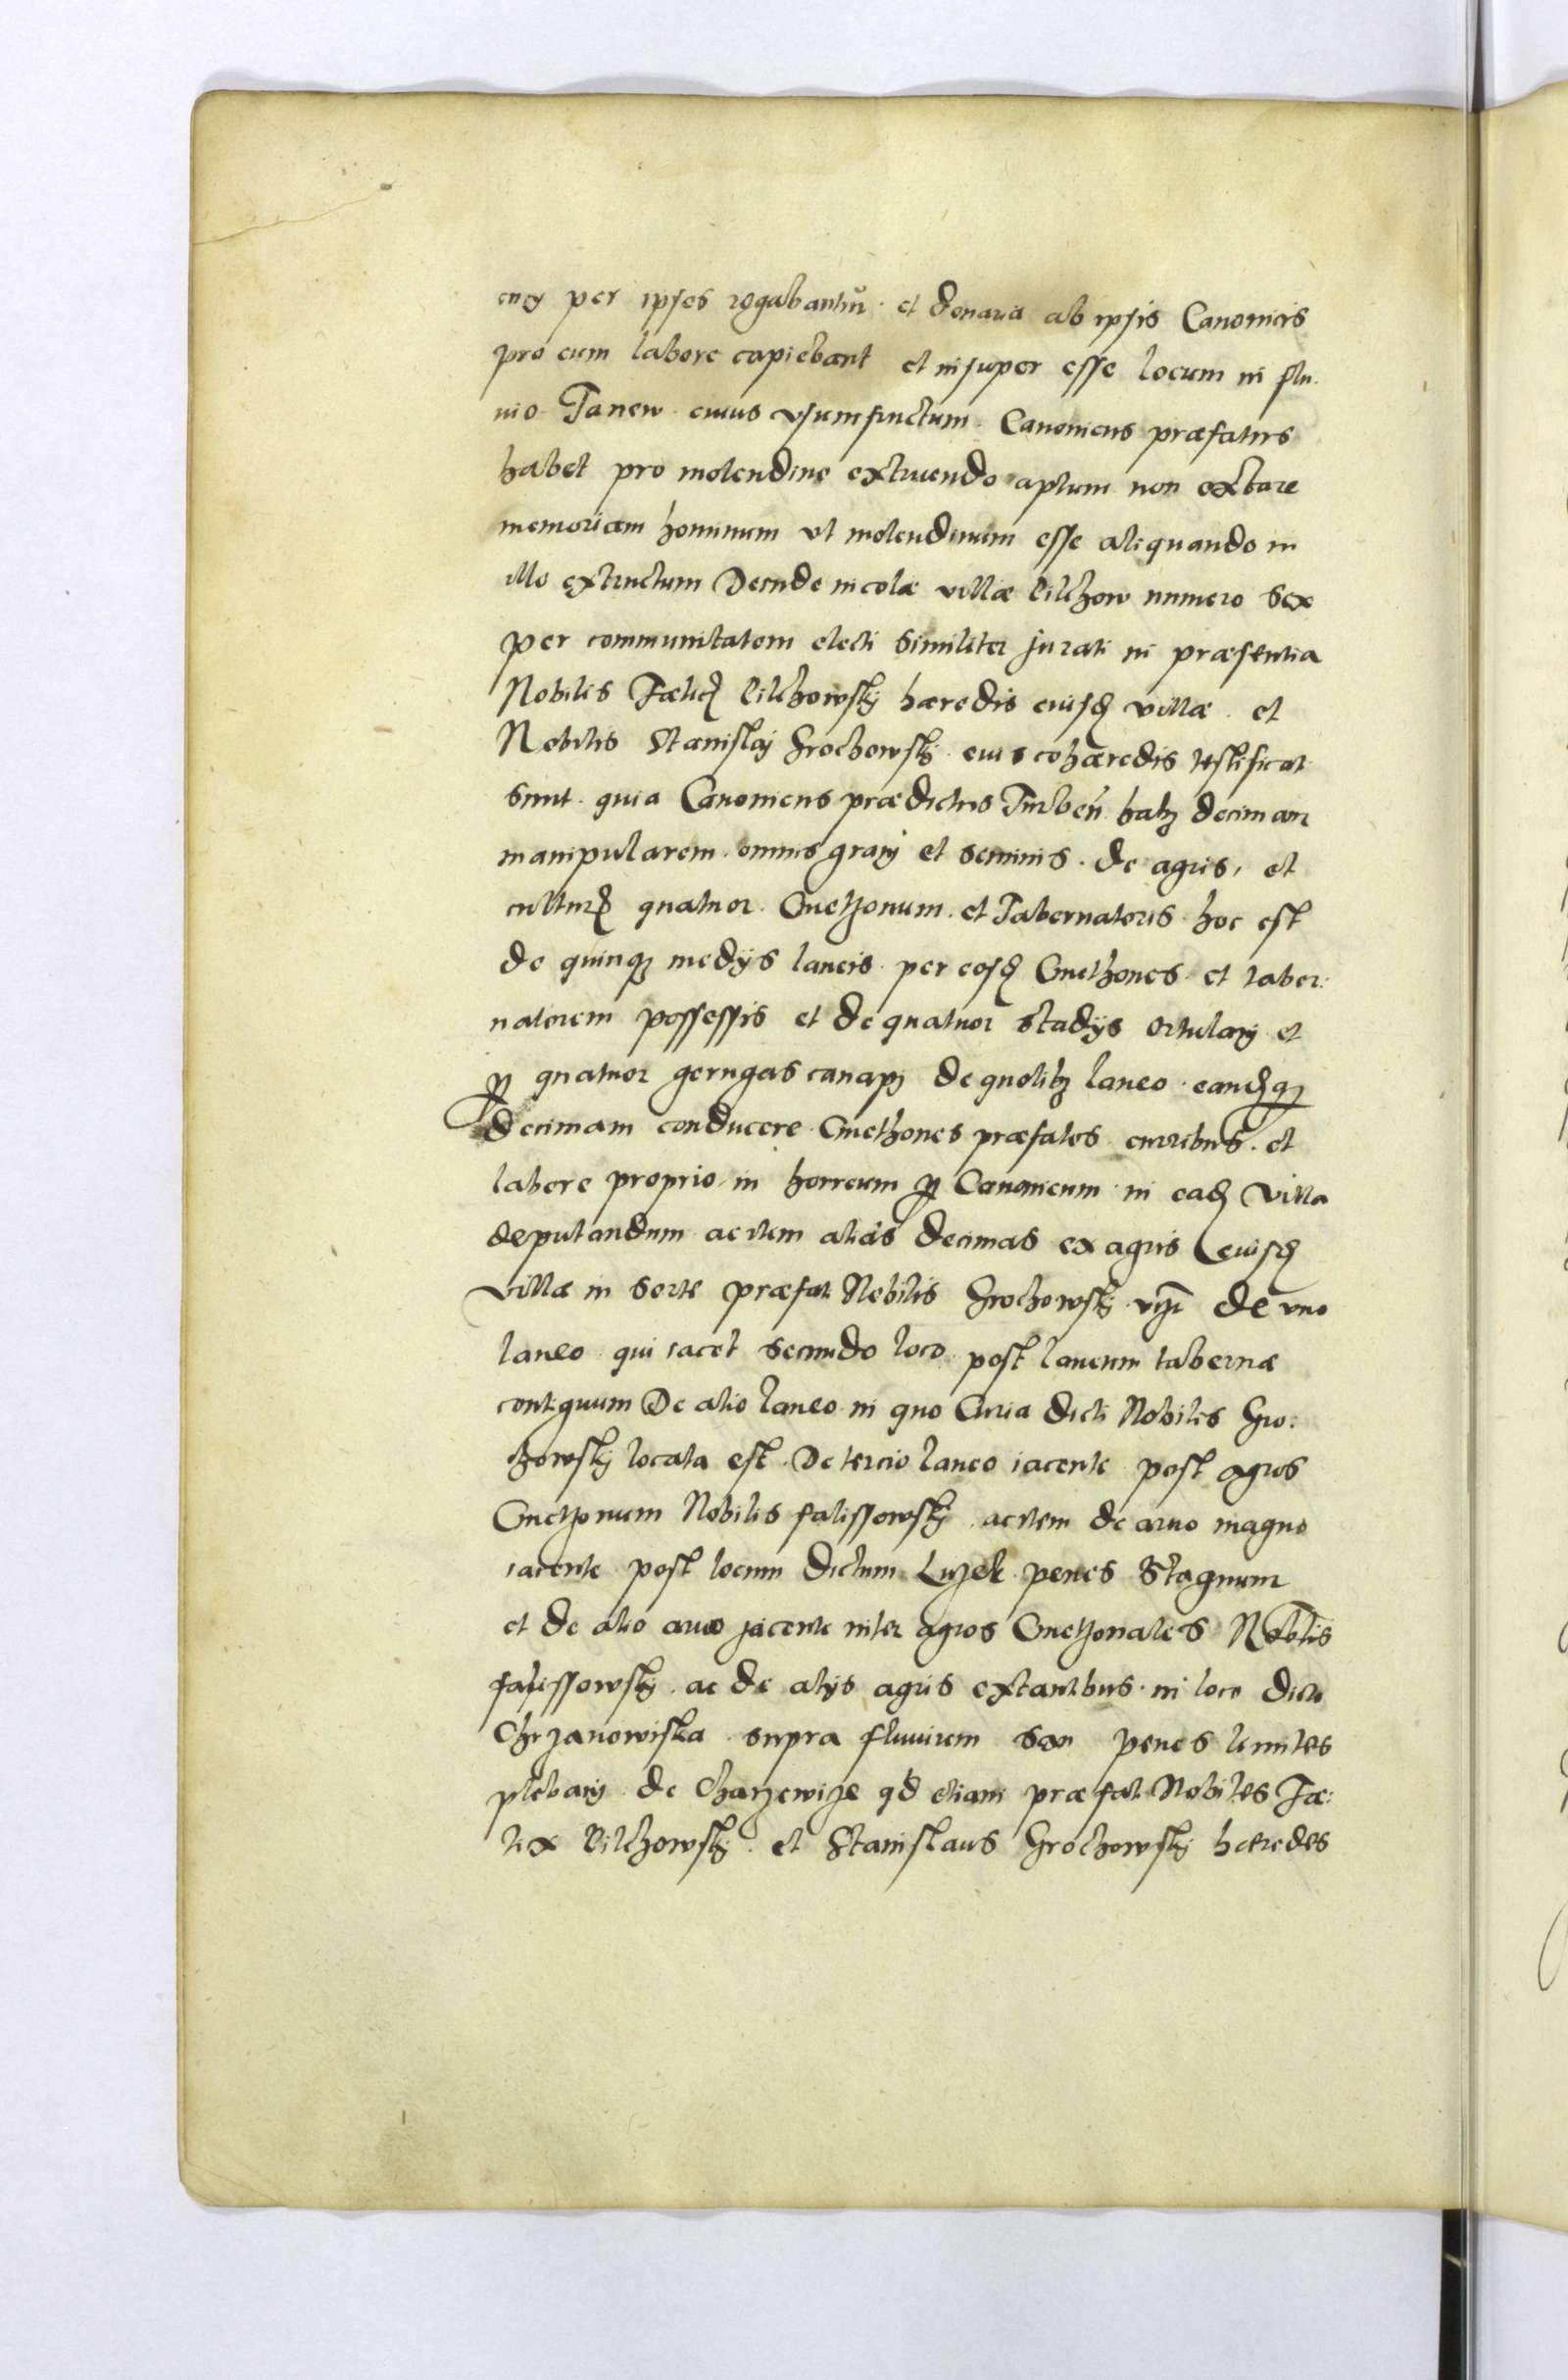 enȩ per ipsos rogabantur et denaria ab ipsis Canonicis
pro eum labore capiebant et insuper esse locum in flu.
uio Tanew cuius vsumfructum Canonicus præfatus
habet pro molendino extruendo aptum non extare
memoriam hominum vt molendinum esse aliquando in
illo extructum Deinde incolæ villæ Pilchow numero sex
per communitatem electi similiter jurati in præsentia
Nobilis Fælic Pilchowskj hæredis eiusd villæ et
Nobilis Stanislaj Grochowskj eius cohæredis testificat
sunt quia Canonicus prædictus Turbeñ habȝ deciman
manipularem omnis granj et seminis de agris, et
culturȝ quatuor Cmethonum et Tabernatoris hoc est
de quinqȝ medijs laneis per eosd Cmethones et taber:
natorem possessis et de quatuor stadijs ortulanj et
p quatuor gerugas canapj de quolibȝ laneo eandqȝ
decimam conducere Cmethones præfatos curribus et
labore proprio in horreum p Canonicum in ead villa
deputandum ac item alias decimas ex agris eiusd
villæ in sorte præfat Nobilis Grochowskj vȝ de vno
laneo qui iacet secundo loco post laneum tabernæ
contiguum De alio laneo in quo Curia dicti Nobilis Gro:
chowskj locata est De tercio laneo iacente post agros
Cmethonum Nobilis falissowskj ac item de aruo magno
iacente post locum dictum Luzek penes Stagnum
et de alio aruo jacente inter agros Cmethonales Nobilis
falissowskj ac de alijs agris extantibus in loco dicto
Chrzanowiska supra fluuium San penes limites
plebanj de Charzewize qd etiam præfat Nobiles Fæ:
lix Pilchowskj et Stanislaus Grochowskj hæredes